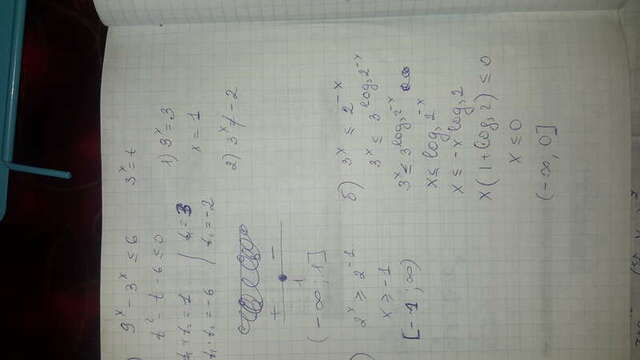 ) 9^x - 3^x ≤ 6 3^x = t
t² - t - 6 ≤ 0 1) 3^x = 3
t₁ + t₂ = 1 / t₁ = 3 x = 1
t₁ · t₂ = -6 t₂ = -2 2) 3^x ≠ -2
+ -
1
(-∞; 1]
) 2^x ≥ 2^-1
x ≥ -1
[-1; ∞)
б) 3^x ≤ 2^-x
3^x ≤ 3^log₃2^-x
3^x ≤ 3^log₃2^-x
x ≤ log₃2^-x
x ≤ -x log₃2
x(1 + log₃2) ≤ 0
x ≤ 0
(-∞, 0]